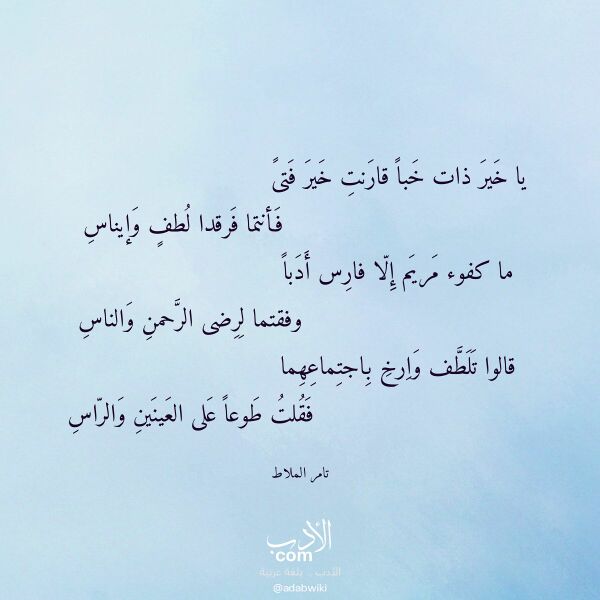 يا خَيرَ ذات خَباً قارَنتِ خَيرَ فَتىً
فَأنتما فَرقدا لُطفٍ وَإيناسِ
ما كفوء مَريَم إِلّا فارِس أَدَباً
وفقتما لِرِضى الرَّحمنِ وَالناسِ
قالوا تَلَطَّف وَاِرخِ بِاجتِماعِهِما
فَقُلتُ طَوعاً عَلى العَينَينِ وَالرّاسِ
تامر الملاط
الأدب
com
الأدب .. بلغة عربية
@adabwiki